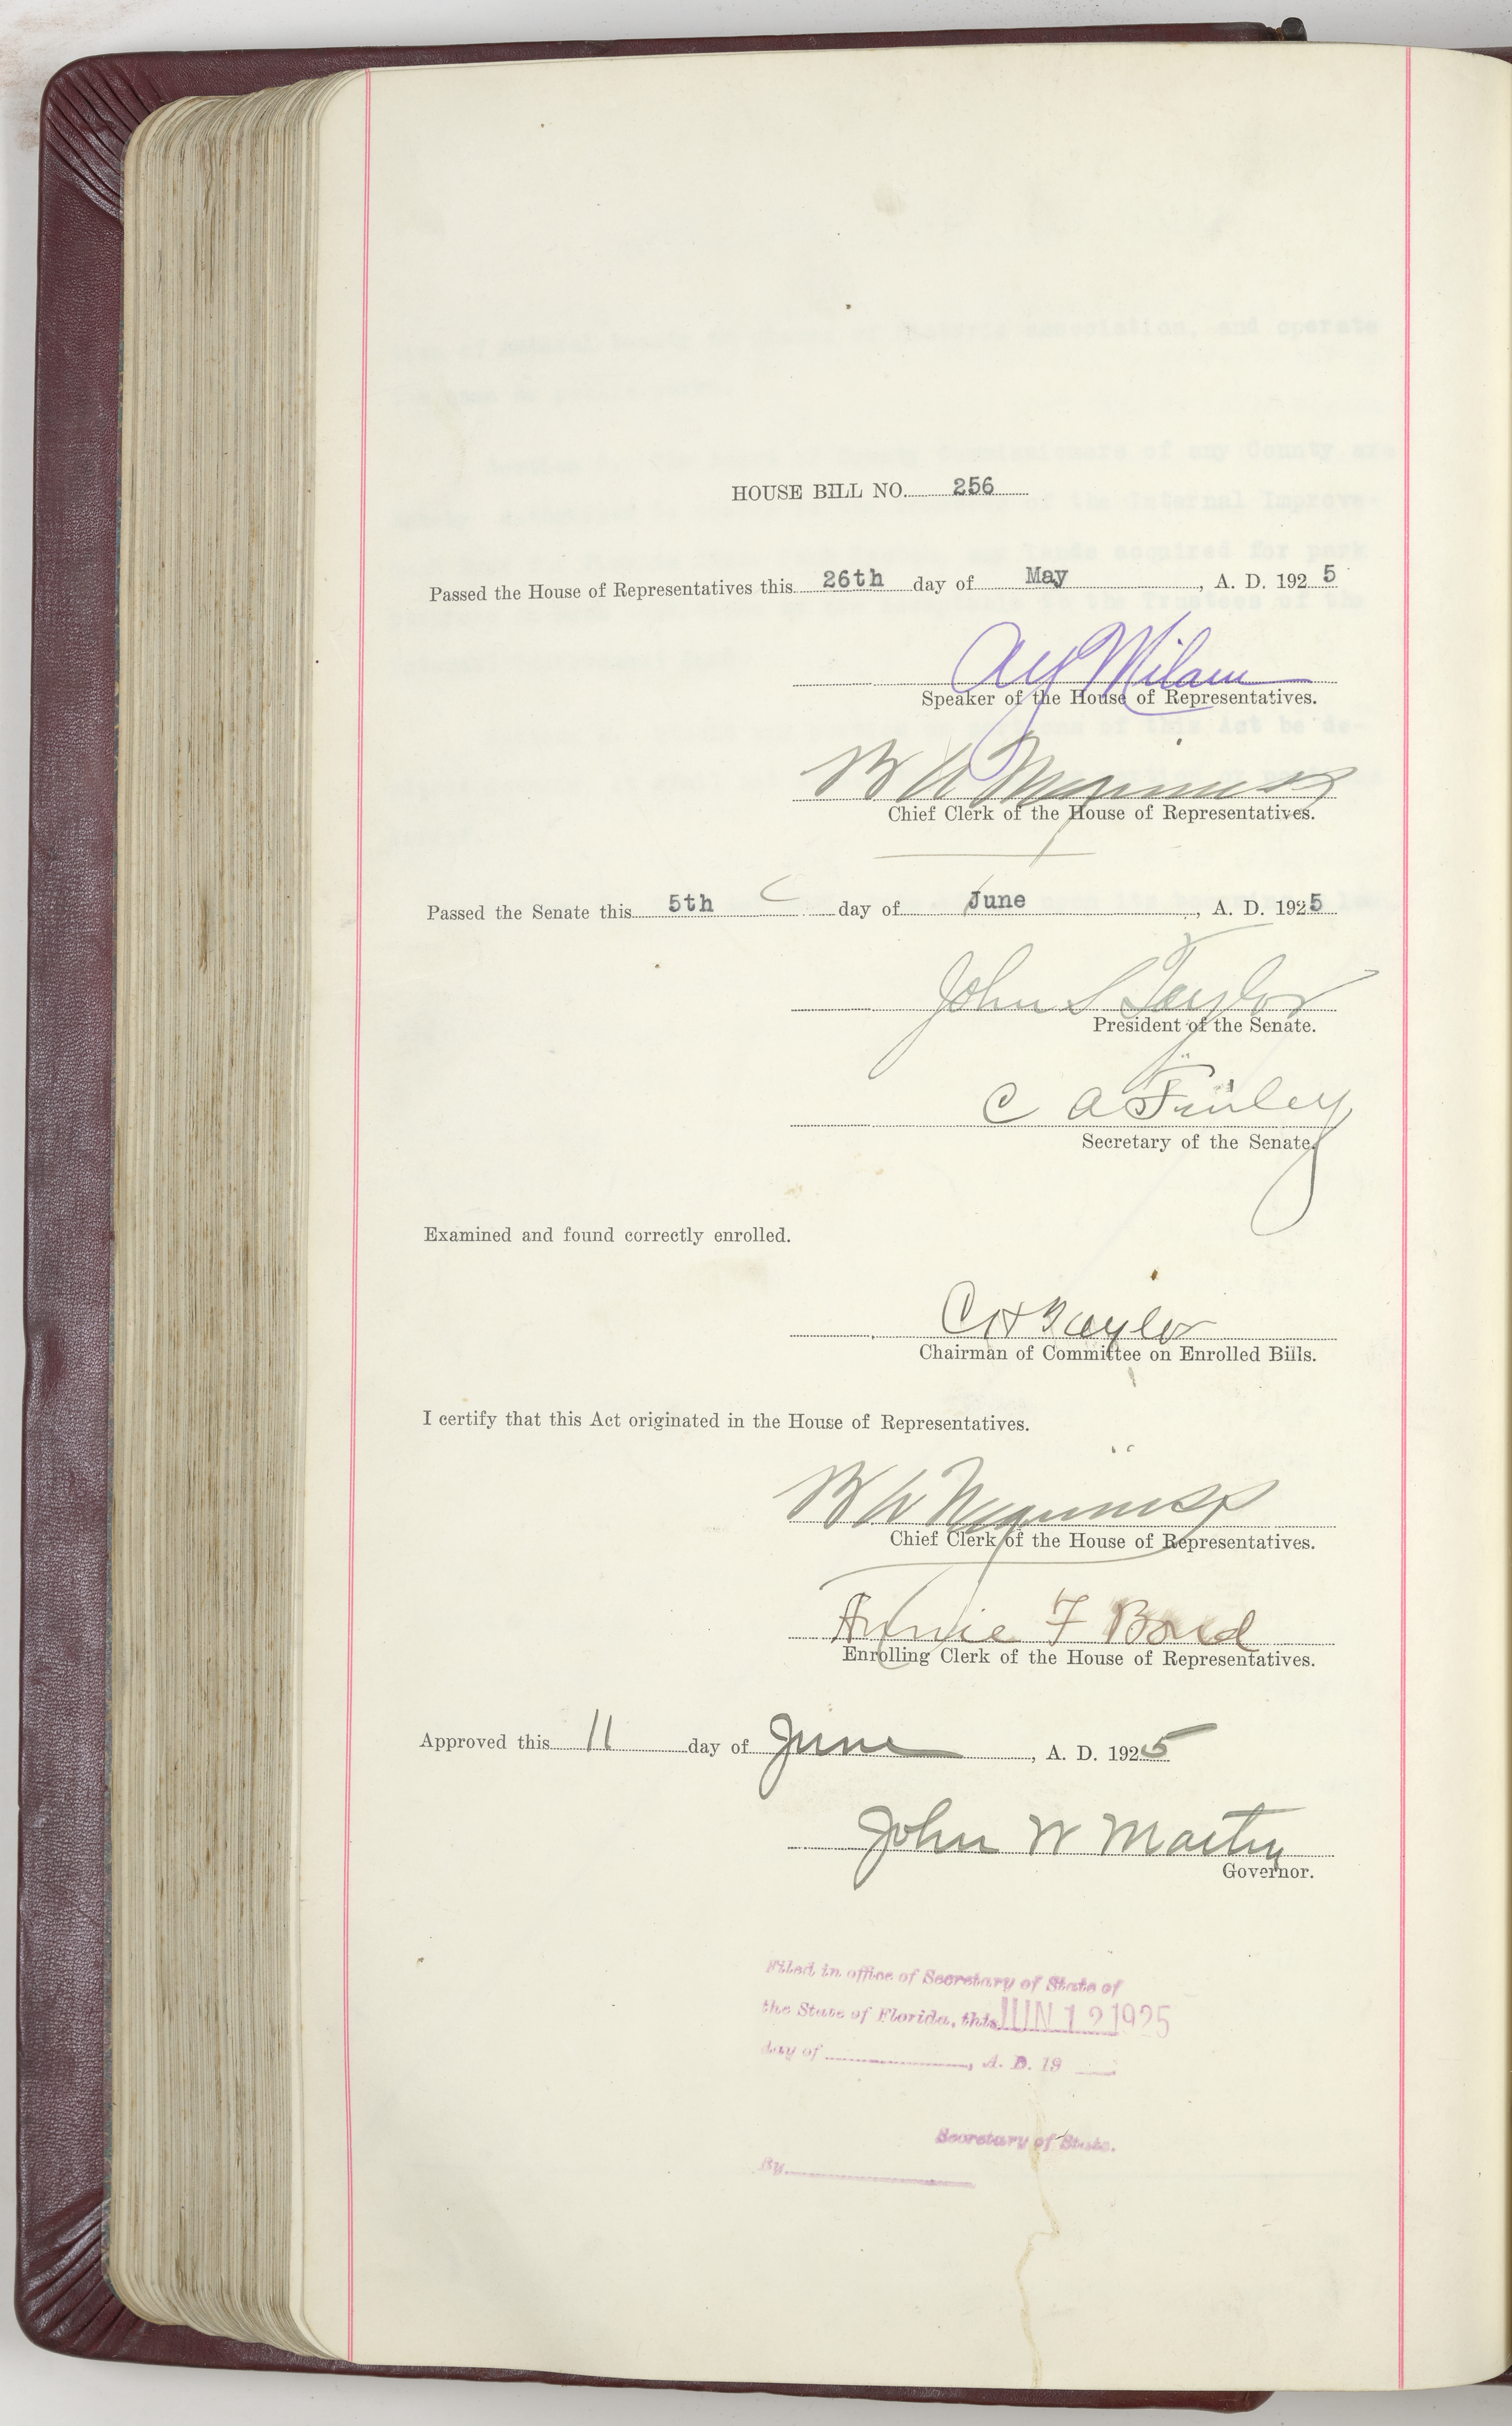 HOUSE BILL NO. 256
Passed the House of Representatives this 26th day of May, A. D. 1925
A Y Milam
Speaker of the House of Representatives.
B A Meginniss
Chief Clerk of the House of Representatives.
Passed the Senate this 5th day of June, A. D. 1925
John S Taylor
President of the Senate.
C A Finley
Secretary of the Senate.
Examined and found correctly enrolled.
C H Taylor
Chairman of Committee on Enrolled Bills.
I certify that this Act originated in the House of Representatives.
B A Meginniss
Chief Clerk of the House of Representatives.
Annie F
Enrolling Clerk of the House of Representatives.
Approved this 11 day of June, A. D. 1925
John W Martin
Governor.
Filed in office of Secretary of State of
the State of Florida, this JUN 12 1925
day of , A. D. 19
Secretary of State.
By